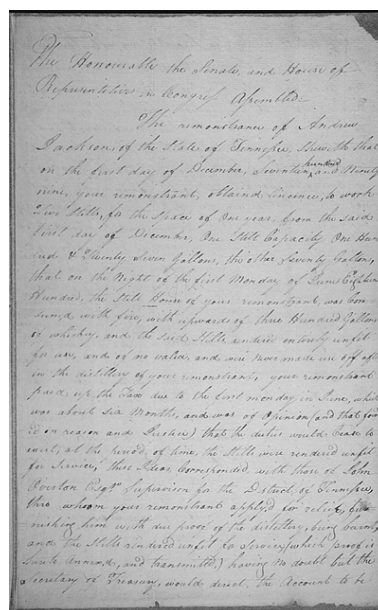 The Honourable the Senate, and House of
Representatives in Congress Assembled.
The remonstrance of Andrew
Jackson, of the State of Tennessee, Sheweth that
on the first day of December, Seventeen hundred and Ninety
nine, your remonstrant, obtaind lincence, to work
Two Stills, for the Space of One year, from the said
first day of December, One Still Capacity One Hun
dred & Twenty Seven Gallons, the other Seventy Gallons,
that on the Night of the first Monday of June Eighteen
Hundred, the Still House of your remonstrant, was Con
sumed, with fire, with upwards of three Hundred Gallons
of whisky, and the said Stills rendred entirely unfit
for use, and of no value, and were never made use off after
in the distillery of your remonstrant, your remonstrant
paid up the Tax due to the first monday in June, which
was about six Months, and was of Opinion (and that found
ed on reason and Justice) that the duties would Cease to
exist, at the period, of time, the Stills were rendered unfit
for Service, these Ideas Corresponded, with those of John
Overton Esqr. Supervisor for the District of Tennessee,
thro whom your remonstrant applyd for relief, fur
nishing him with due proof of the distillery, being burnt,
and the Stills rendered unfit for Service (which proof is
hereto Annexed, and transmitted) having no doubt but the
Secretary of Treasury, would direct, the Account to be